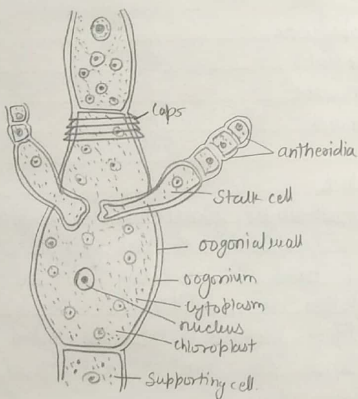 Caps
antheridia
Stalk cell
oogonial wall
oogonium
cytoplasm
nucleus
chloroplast
supporting cell.